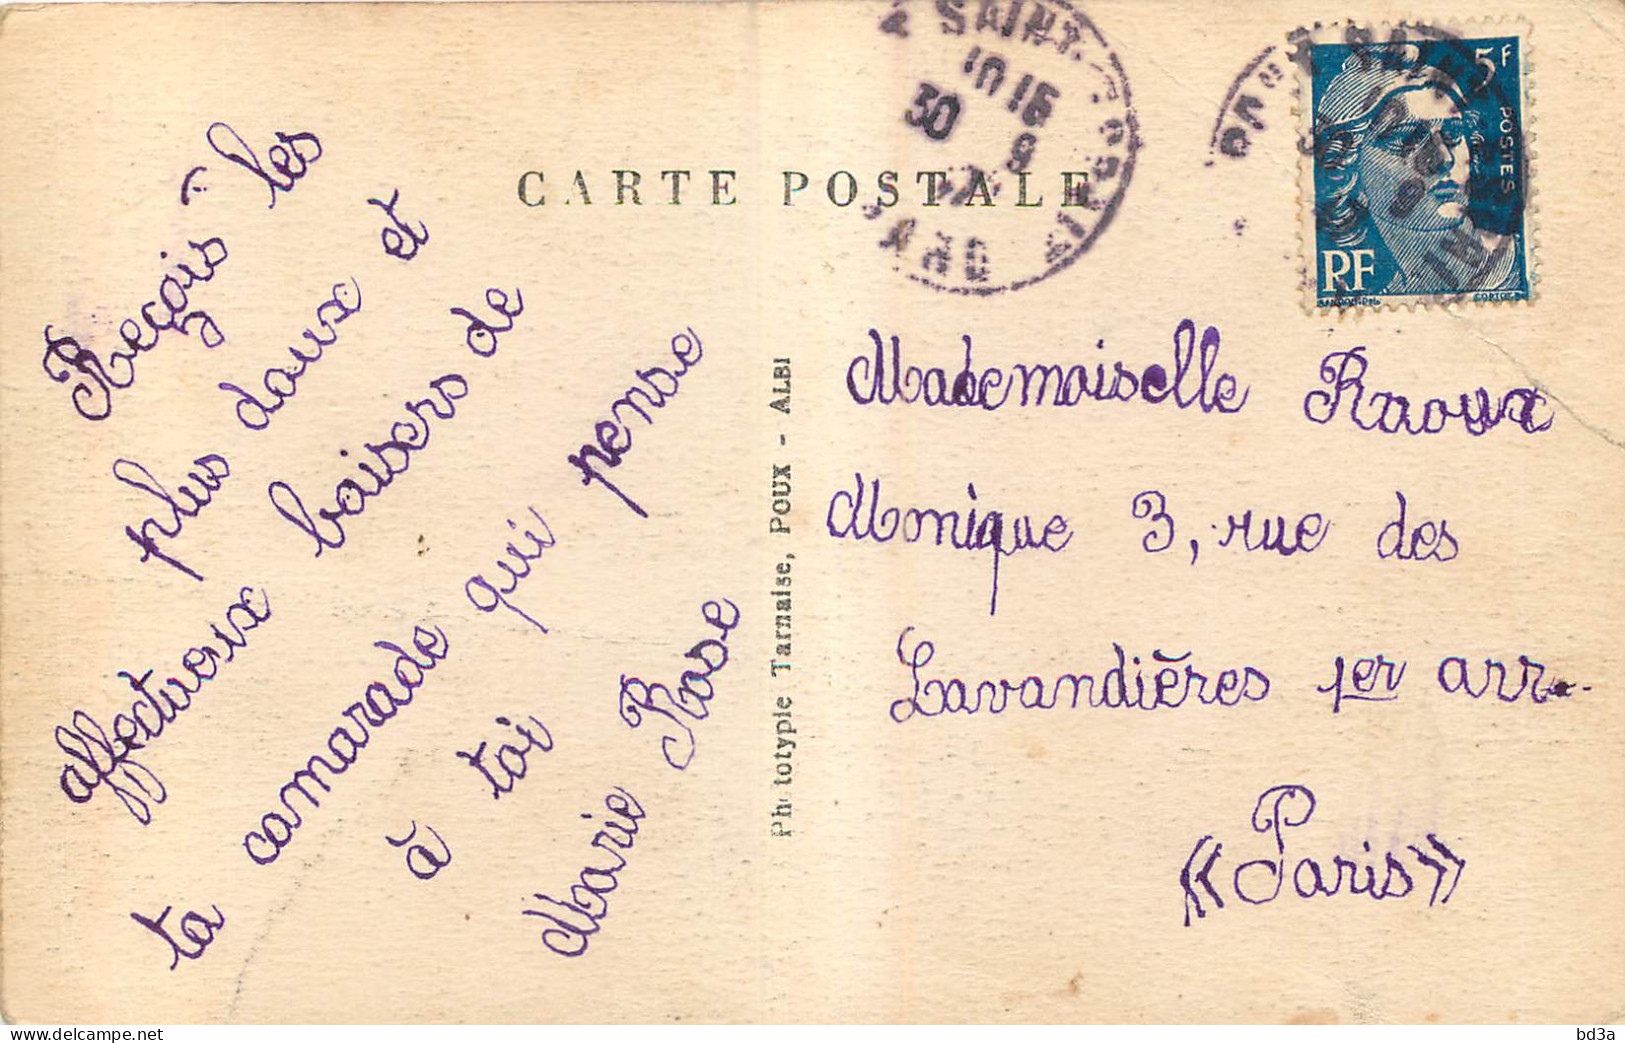 CARTE POSTALE
Reçois les
plus doux et
affectueux baisers de
ta camarade qui pense
à toi
Marie Rose
Phototypie Tarnaise, POUX - ALBI
SAINT
10 15
30
9
5F
POSTES
RF
Mademoiselle Raoux
Monique 3, rue des
Lavandières 1er arr.
« Paris »
bd3a